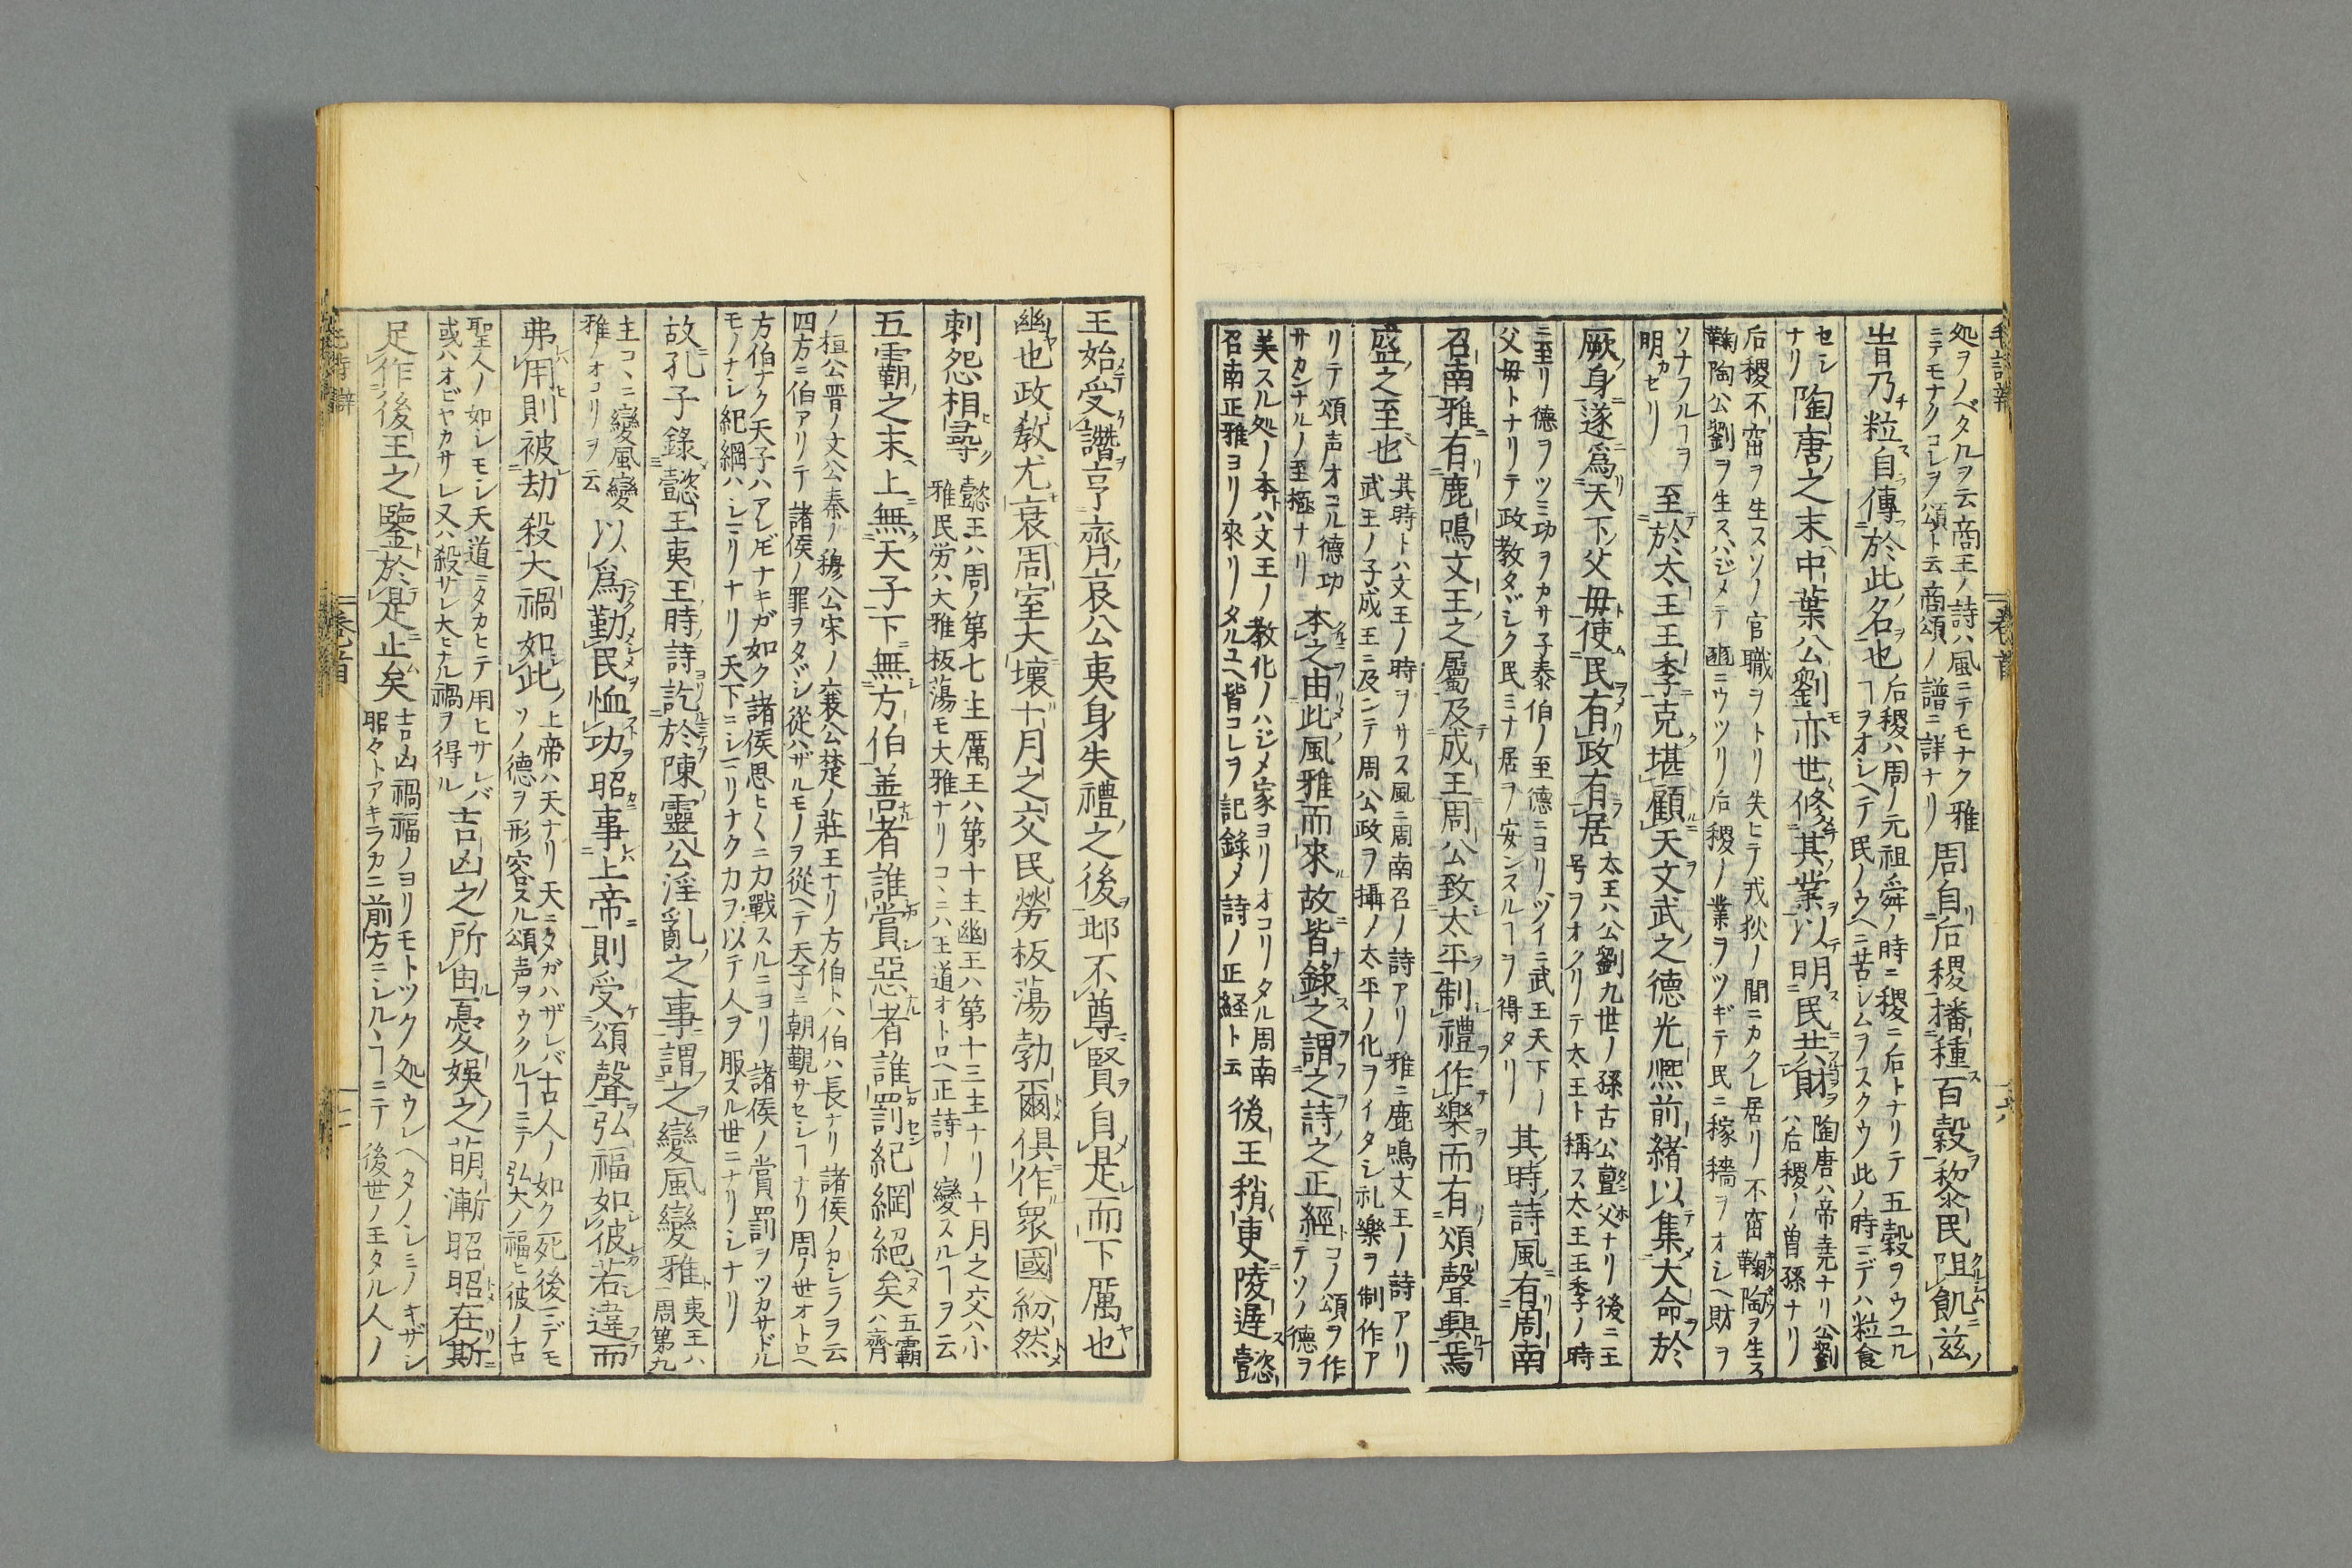 毛詩辯
卷首
処ヲノベタルヲ云商王ノ詩ハ風ニテモナク雅
ニテモナクコレヲ頌ト云商頌ノ譜ニ詳ナリ
周自后稷播種百穀黎民阻飢茲
時乃粒自傳於此名也
后稷ハ周ノ元祖舜ノ時ニ稷ニ后トナリテ五穀ヲウユル
ヿヲオシヘテ民ノウヘニ苦シムヲスクウ此ノ時ミデハ粒食
セシ
ナリ
陶唐之末中葉公劉亦世修其業以明民共財
陶唐ハ帝堯ナリ公劉
ハ后稷ノ曽孫ナリ
后稷不窋ヲ生スソノ官職ヲトリ失ヒテ戎狄ノ間ニカクレ居リ不窋鞠陶ヲ生ス
鞠陶公劉ヲ生スハジメテ豳ニウツリ后稷ノ業ヲツギテ民ニ稼穡ヲオシヘ財ヲ
ソナフルヿヲ
明カセリ
至於太王王季克堪顧天文武之德光熈前緒以集大命於
厥身遂爲天下父毋使民有政有居
太王ハ公劉九世ノ孫古公亶父ナリ後ニ王
号ヲオクリテ太王ト稱ス太王王季ノ時
ニ至リ德ヲツミ功ヲカサ子泰伯ノ至德ニヨリツイニ武王天下ノ
父毋トナリテ政教タヾシク民ミナ居ヲ安ンスルヿヲ得タリ
其時詩風有周南
召南雅有鹿鳴文王之屬及成王周公致太平制禮作樂而有頌聲興焉
盛之至也
其時トハ文王ノ時ヲサス風ニ周南召ノ詩アリ雅ニ鹿鳴文王ノ詩アリ
武王ノ子成王ニ及ンテ周公政ヲ攝ノ太平ノ化ヲイタシ礼樂ヲ制作ア
リテ頌声オコル德功
サカンナルノ至極ナリ
本之由此風雅而來故皆錄之謂之詩之正經
コノ頌ヲ作
テソノ德ヲ
美スル処ノ本ハ文王ノ教化ノハジメ家ヨリオコリタル周南
召南正雅ヨリ來リタルユヘ皆コレヲ記録メ詩ノ正経ト云
後王稍更陵遅懿
王始受譖亨齊哀公夷身失禮之後邶不尊賢自是而下厲也
幽也政教尤衰周室大壞十月之交民勞板蕩勃爾俱作衆國紛然
刺怨相尋
懿王ハ周ノ第七主厲王ハ第十主幽王ハ第十三主ナリ十月之交ハ小
雅民労ハ大雅板蕩モ大雅ナリコヽニハ王道オトロヘ正詩ノ變スルヿヲ云
五霸之末上無天子下無方伯善者誰賞惡者誰罰紀綱絕矣
五霸
ハ齊
ノ桓公晋ノ文公秦ノ穆公宋ノ襄公楚ノ莊王ナリ方伯トハ伯ハ長ナリ諸侯ノカシラヲ云
四方ニ伯アリテ諸侯ノ罪ヲタヾシ從ハザルモノヲ從ヘテ天子ニ朝覲サセシヿナリ周ノ世オトロヘ
方伯ナク天子ハアレ𪜈ナキガ如ク諸侯思ヒ〱ニ力戰スルニヨリ諸侯ノ賞罰ヲツカサドル
モノナシ紀綱ハシマリナリ天下ニシマリナク力ヲ以テ人ヲ服スル世ニナリシナリ
故孔子錄懿王夷王時詩訖於陳靈公淫亂之事謂之變風變雅
夷王ハ
周第九
主コヽニ變風變
雅ノオコリヲ云
以爲勤民恤功昭事上帝則受頌聲弘福如彼若違而
弗用則被劫殺大禍如此
上帝ハ天ナリ天ニタガハザレバ古人ノ如ク死後ミデモ
ソノ德ヲ形容スル頌声ヲウクルヿニテ弘大ノ福ヒ彼ノ古
聖人ノ如シモシ天道ニタカヒテ用ヒサレバ
或ハオビヤカサレ又ハ殺サレ大ヒナル禍ヲ得ル
吉凶之所由憂娯之萌漸昭昭在斯
足作後王之鑒於是止矣
吉凶禍福ノヨリモトツク処ウレヘタノシミノキザシ
昭々トアキラカニ前方ニシルヽヿニテ後世ノ王タル人ノ
毛詩辯
卷首